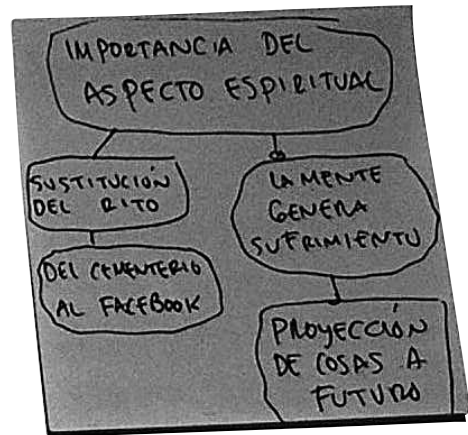 IMPORTANCIA DEL
ASPECTO ESPIRITUAL
SUSTITUCIÓN
DEL RITO
DEL CEMENTERIO
AL FACEBOOK
LA MENTE
GENERA
SUFRIMIENTO
PROYECCIÓN
DE COSAS A
FUTURO